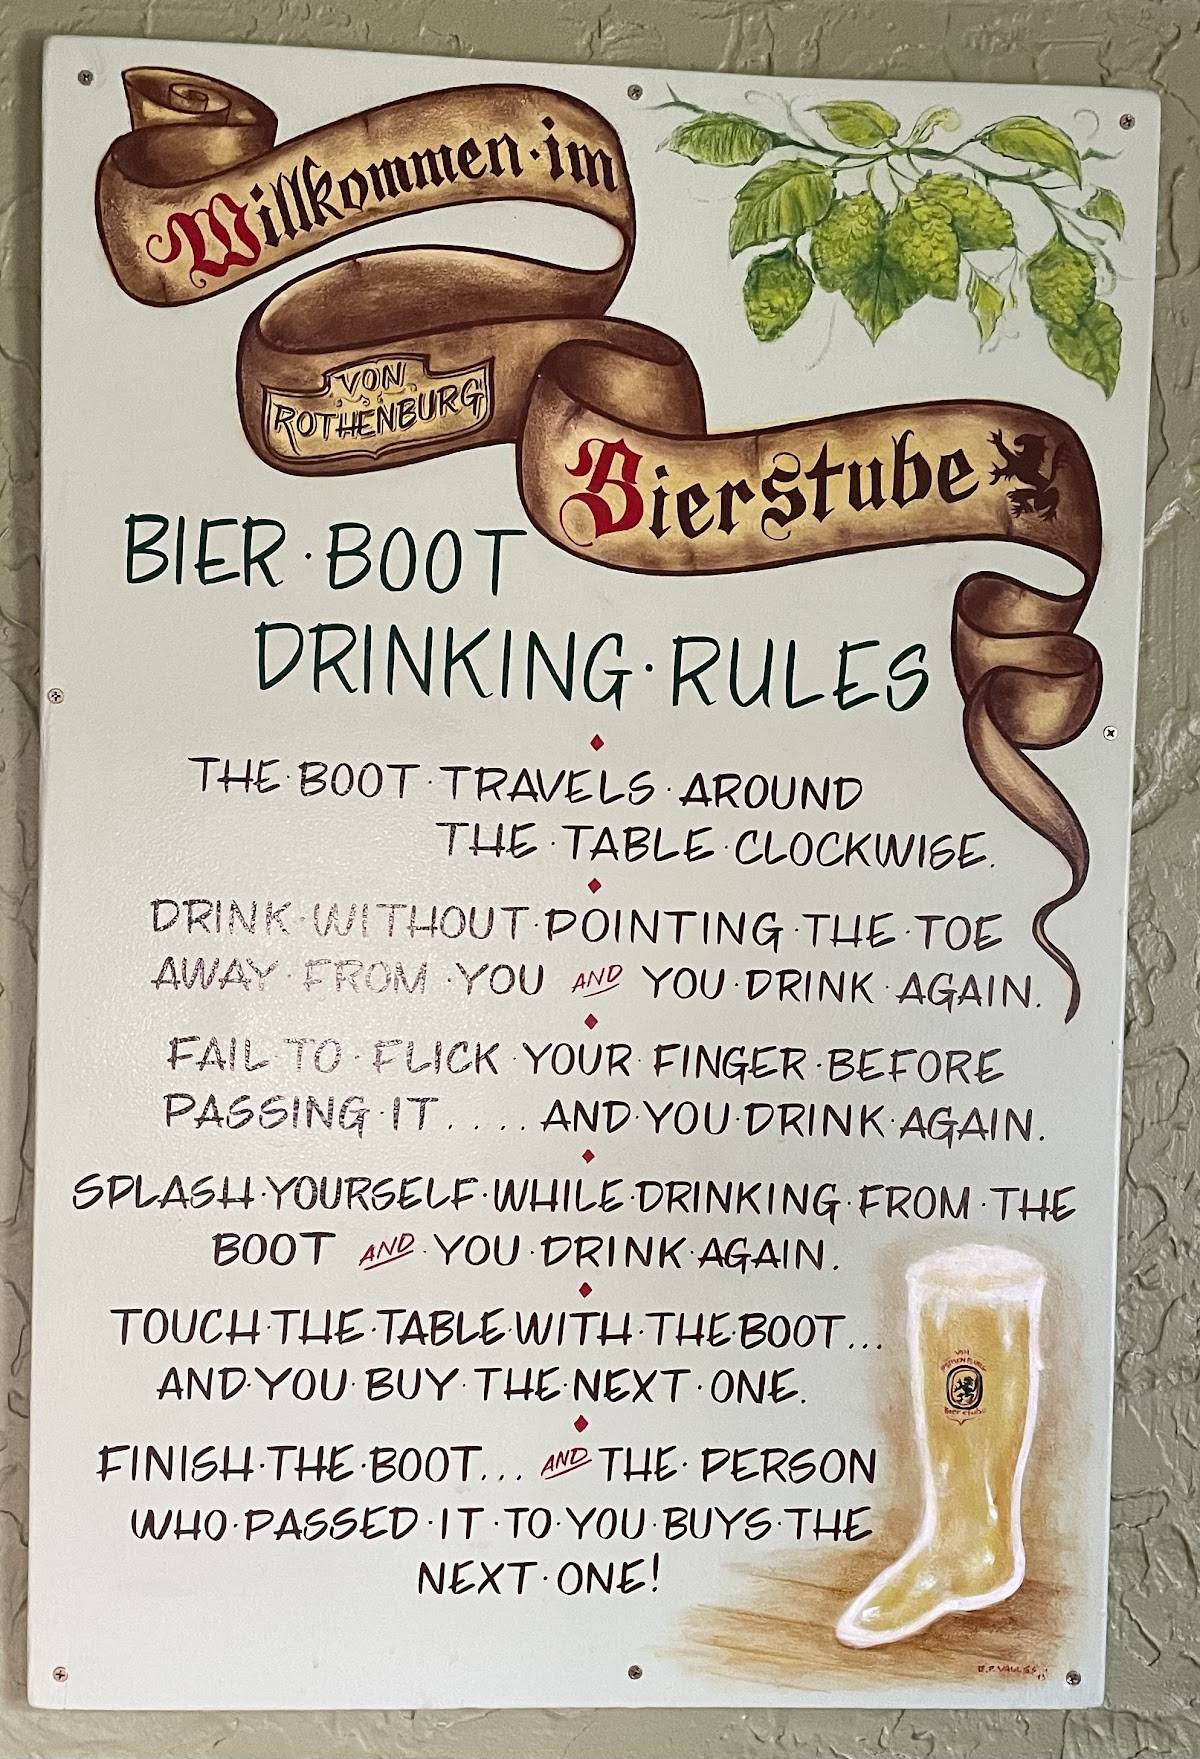 Willkommen·im
VON
ROTHENBURG
Bierstube
BIER·BOOT
DRINKING·RULES
THE·BOOT·TRAVELS·AROUND
THE·TABLE·CLOCKWISE.
DRINK·WITHOUT·POINTING·THE·TOE
AWAY·FROM·YOU AND YOU·DRINK·AGAIN.
FAIL·TO·FLICK·YOUR·FINGER·BEFORE
PASSING·IT....AND·YOU·DRINK·AGAIN.
SPLASH·YOURSELF·WHILE·DRINKING·FROM·THE
BOOT AND·YOU·DRINK·AGAIN.
TOUCH·THE·TABLE·WITH·THE·BOOT...
AND·YOU·BUY·THE·NEXT·ONE.
FINISH·THE·BOOT... AND THE·PERSON
WHO·PASSED·IT·TO·YOU·BUYS·THE
NEXT·ONE!